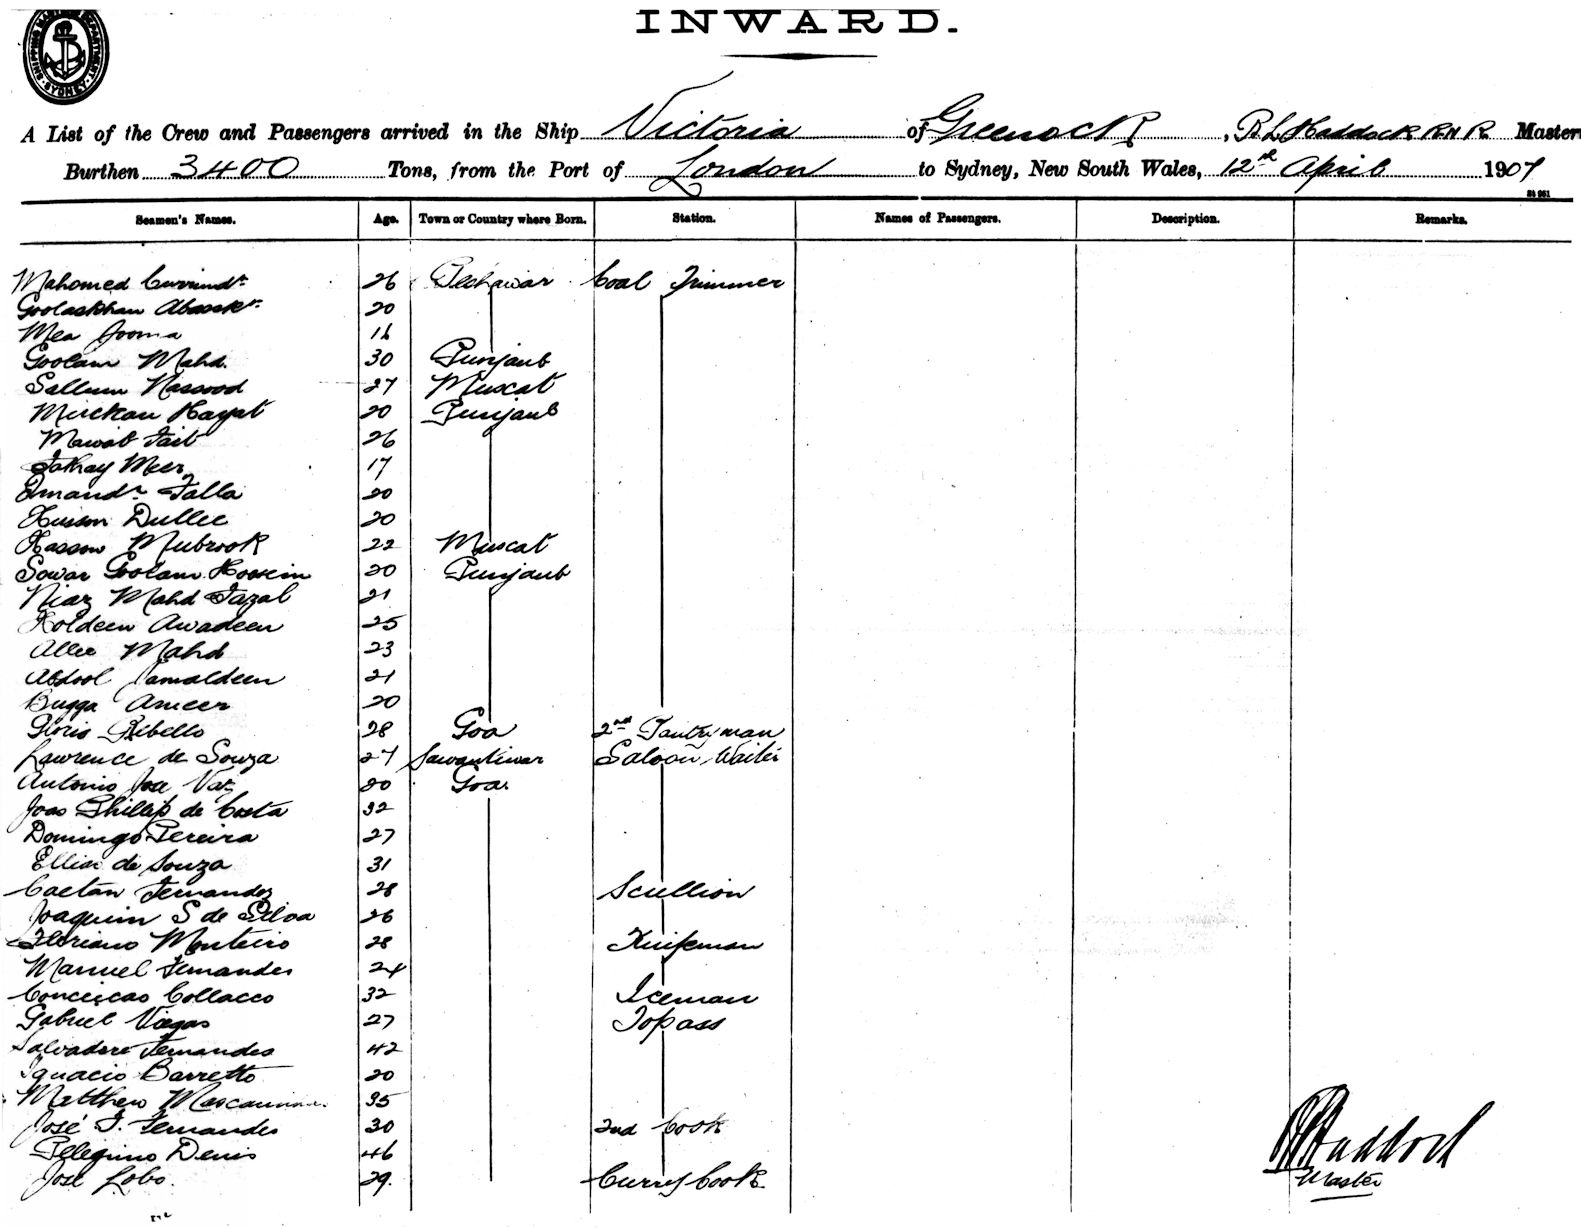 SHIPPING MASTERS DEPARTMENT. SYDNEY
INWARD.
A List of the Crew and Passengers arrived in the Ship Victoria of Greenock, Master
Burthen 3400 Tons, from the Port of London to Sydney, New South Wales, 12th April 1907
Seamen's Names. Age. Town or Country where Born. Station. Names of Passengers. Description. Remarks.
Mahomed 26 Peshawar Coal Trimmer
20
Mea Jooma 16
Goolam Mahd. 30 Punjaub
Sallum Nassood 27 Muscat
Mirckau Hayat 20 Punjaub
26
Meer 17
Falla 20
Dullee 20
Hassow Mubrook 22 Muscat
Sowar Goolam Hossein 20 Punjaub
Niaz Mahd Fazal 21
Koldeen Awadeen 25
Allee Mahd 23
Abdool Jamaldeen 21
Bugga Ameer 20
Ribello 28 Goa 2nd Pantryman
Lawrence de Souza 27 Sawantiwar Saloon Waiter
Antonio Jose Vaz 20 Goa
Joao Phillip de Costa 32
Domingo Pereira 27
Ellias de Souza 31
Caetan Fernandez 28 Scullion
Joaquim S de Silva 26
Floriano Monteiro 28 Knifeman
Manuel Fernandes 24
Conceicao Collacco 32 Iceman
Gabriel Viegas 27 Topass
Salvadore Fernandes 42
Ignacio Barretto 20
Matthew 35
José F. Fernandes 30 2nd Cook
Pelegrino Denis 46
José Lobo. 29. Curry Cook
Haddock
Master